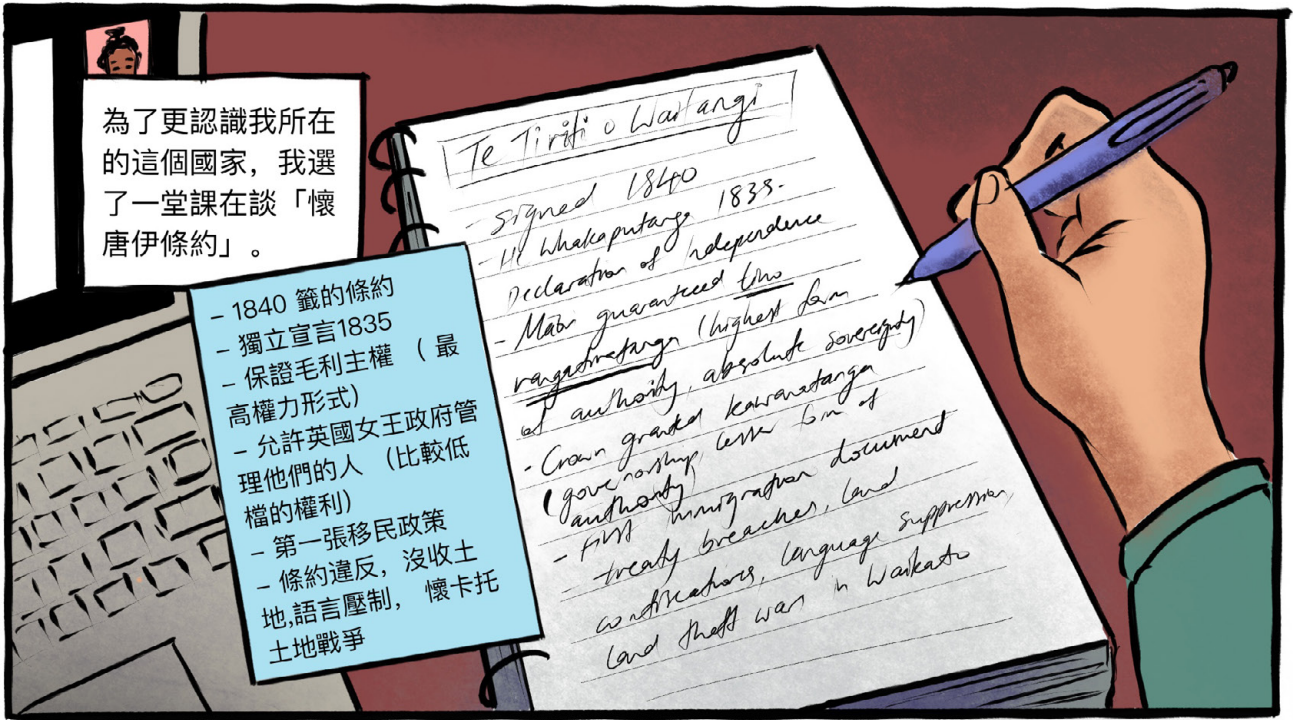 為了更認識我所在
的這個國家，我選
了一堂課在談「懷
唐伊條約」。
– 1840 籤的條約
– 獨立宣言1835
– 保證毛利主權 （最
高權力形式)
– 允許英國女王政府管
理他們的人 （比較低
檔的權利)
– 第一張移民政策
– 條約違反，沒收土
地,語言壓制， 懷卡托
土地戰爭
Te Tiriti o Waitangi
- signed 1840
- He Whakaputanga 1835-
Declaration of independence
- Māori guaranteed tino
rangatiratanga (highest form
of authority, absolute sovereignty)
- Crown granted kawanatanga
(governorship, lesser form of
authority)
- First immigration document
treaty breaches, land
confiscations, language suppression,
land theft wars in Waikato